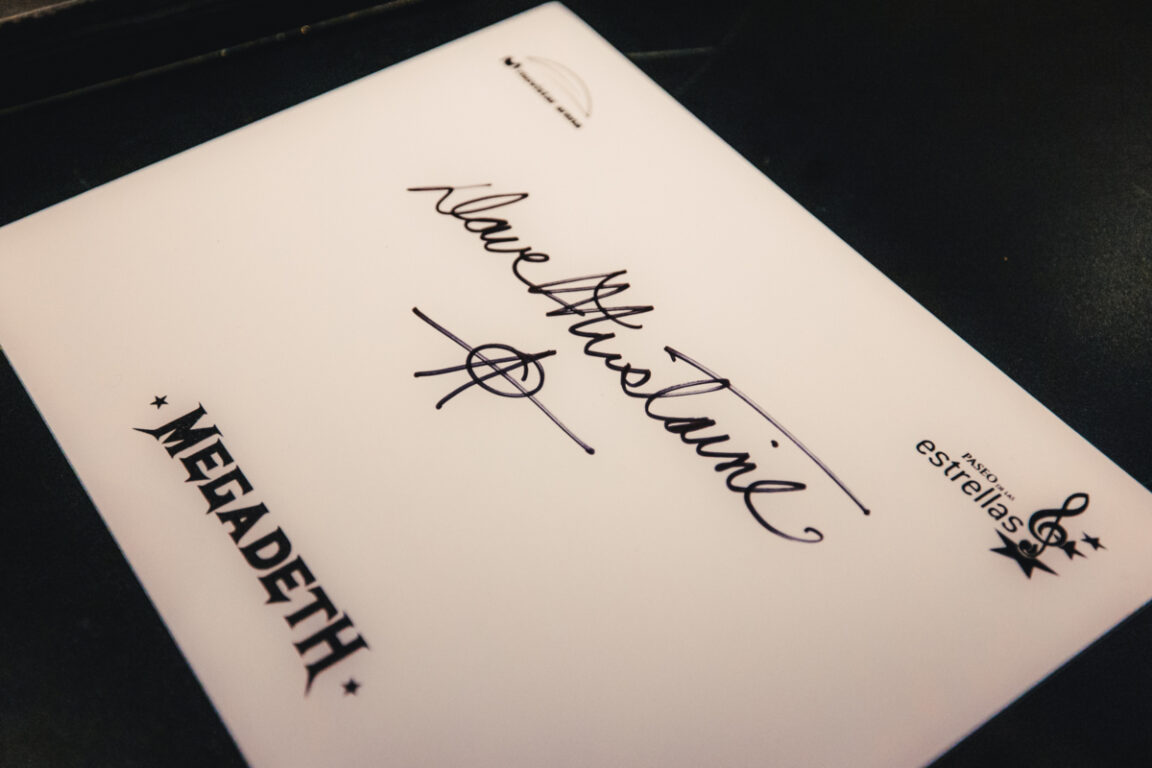 Dave Mustaine
MEGADETH
PASEO DE LAS
estrellas